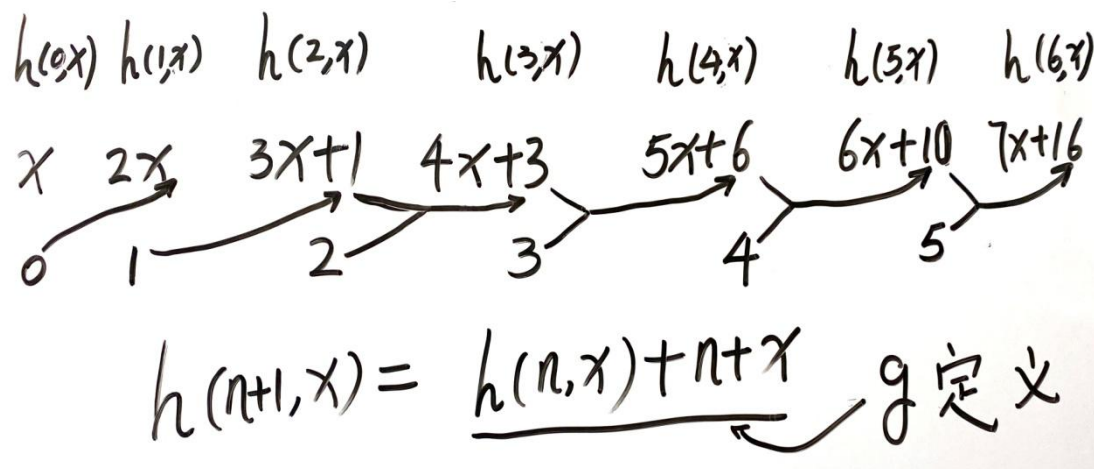 h(0,x) h(1,x) h(2,x) h(3,x) h(4,x) h(5,x) h(6,x)
x 2x 3x+1 4x+3 5x+6 6x+10 7x+16
0 1 2 3 4 5
h(n+1,x)= h(n,x)+n+x g定义